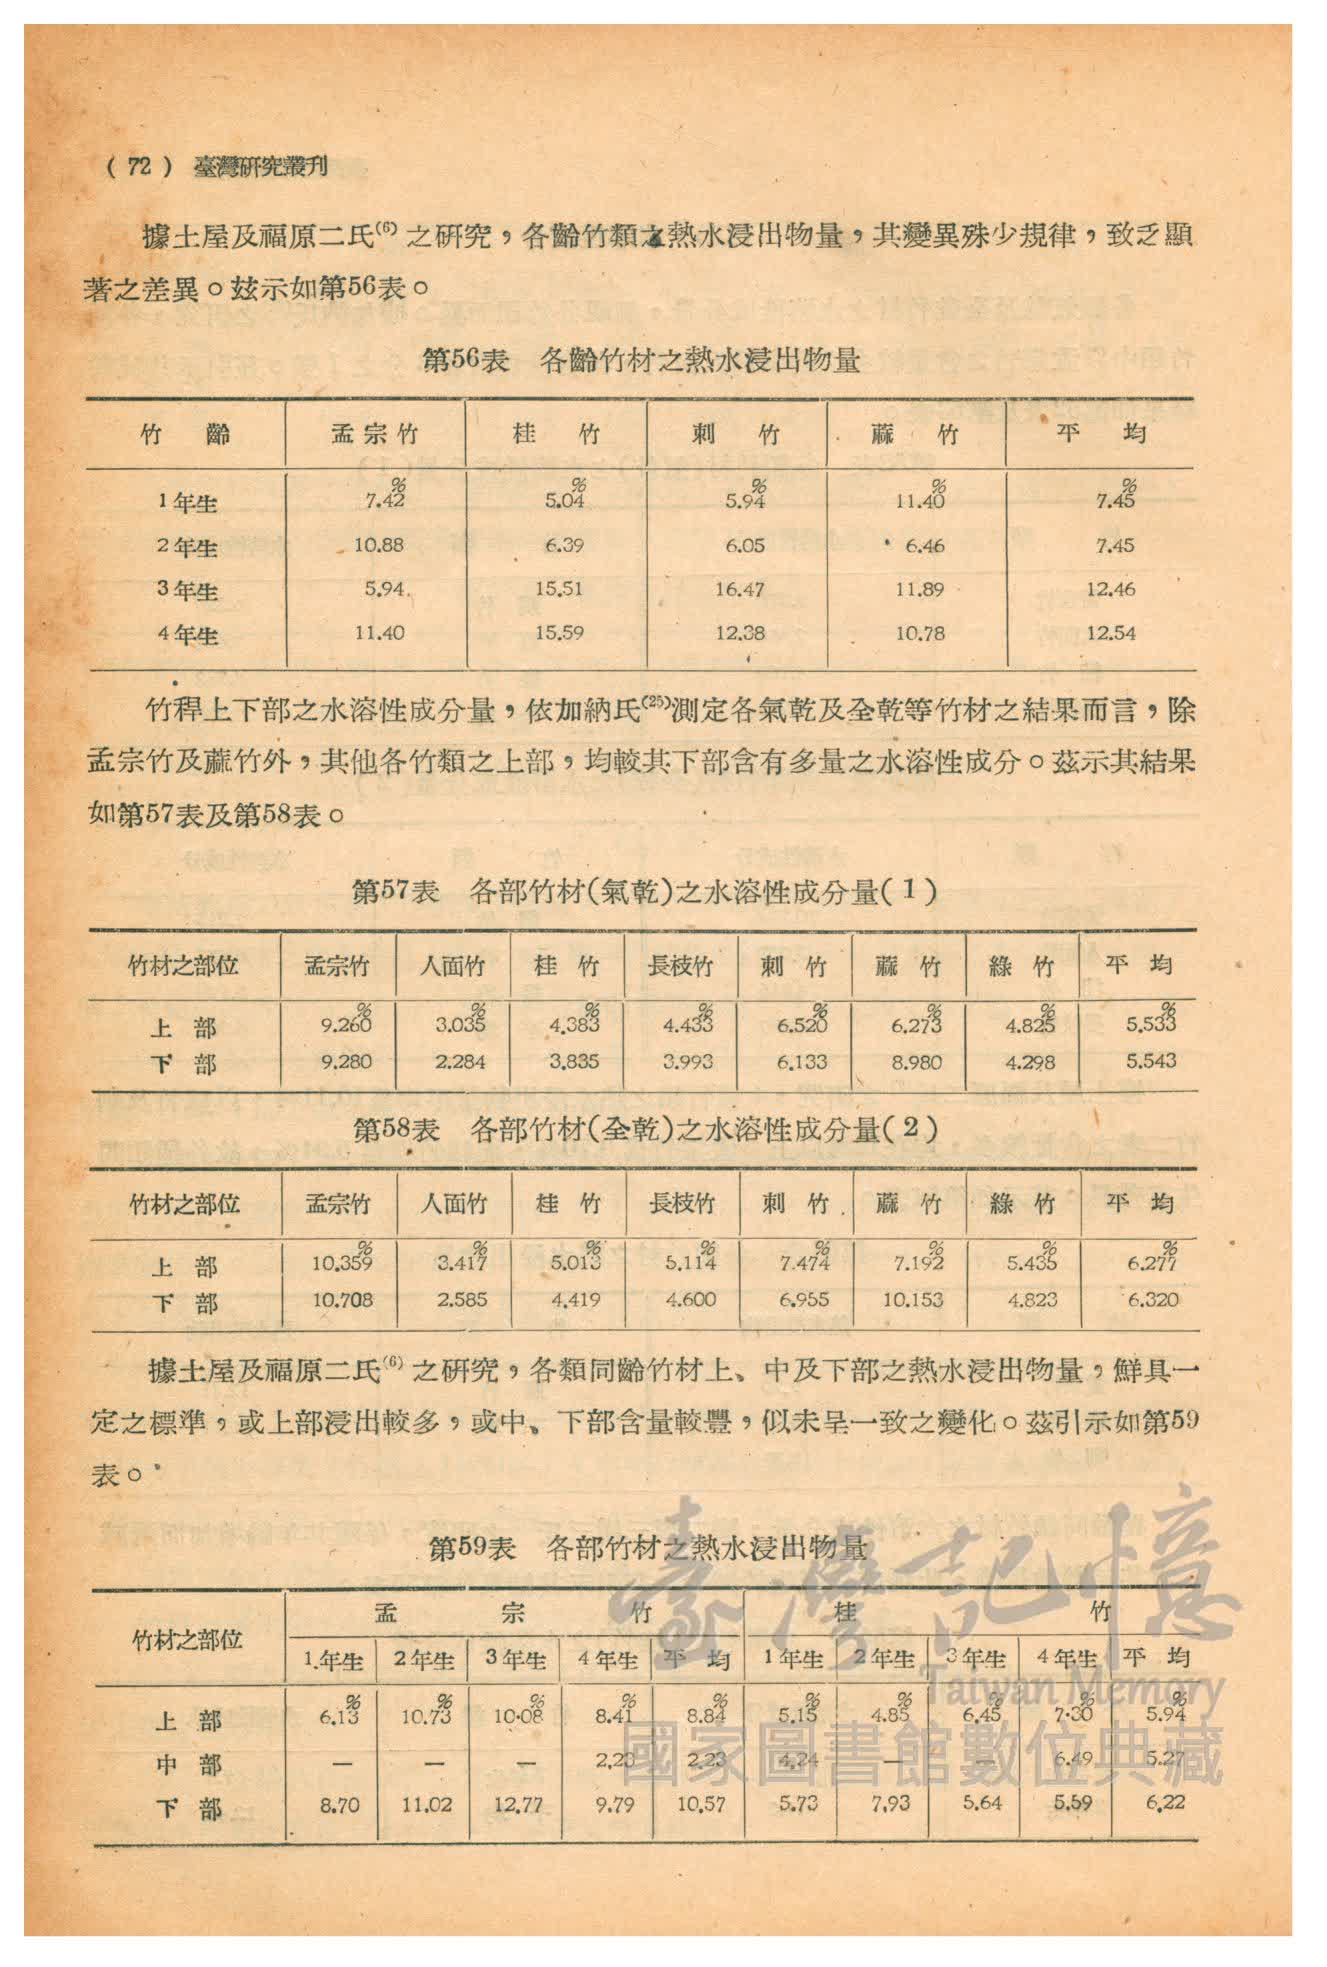 (72) 臺灣研究叢刊
據土屋及福原二氏(6)之研究，各齡竹類之熱水浸出物量，其變異殊少規律，致乏顯
著之差異。茲示如第56表。
第56表 各齡竹材之熱水浸出物量
竹 齡 孟宗竹 桂 竹 刺 竹 蔴 竹 平 均
% % % % %
1年生 7.42 5.04 5.94 11.40 7.45
2年生 10.88 6.39 6.05 6.46 7.45
3年生 5.94 15.51 16.47 11.89 12.46
4年生 11.40 15.59 12.38 10.78 12.54
竹稈上下部之水溶性成分量，依加納氏(25)測定各氣乾及全乾等竹材之結果而言，除
孟宗竹及蔴竹外，其他各竹類之上部，均較其下部含有多量之水溶性成分。茲示其結果
如第57表及第58表。
第57表 各部竹材(氣乾)之水溶性成分量(1)
竹材之部位 孟宗竹 人面竹 桂 竹 長枝竹 刺 竹 蔴 竹 綠 竹 平 均
% % % % % % % %
上 部 9.260 3.035 4.383 4.433 6.520 6.273 4.825 5.533
下 部 9.280 2.284 3.835 3.993 6.133 8.980 4.298 5.543
第58表 各部竹材(全乾)之水溶性成分量(2)
竹材之部位 孟宗竹 人面竹 桂 竹 長枝竹 刺 竹 蔴 竹 綠 竹 平 均
% % % % % % % %
上 部 10.359 3.417 5.013 5.114 7.474 7.192 5.435 6.277
下 部 10.708 2.585 4.419 4.600 6.955 10.153 4.823 6.320
據土屋及福原二氏(6)之研究，各類同齡竹材上、中及下部之熱水浸出物量，鮮具一
定之標準，或上部浸出較多，或中、下部含量較豐，似未呈一致之變化。茲引示如第59
表。
第59表 各部竹材之熱水浸出物量
竹材之部位 孟 宗 竹 桂 竹
1年生 2年生 3年生 4年生 平 均 1年生 2年生 3年生 4年生 平 均
% % % % % % % % % %
上 部 6.13 10.73 10.08 8.41 8.84 5.15 4.85 6.45 7.30 5.94
中 部 — — — 2.23 2.23 4.24 — — 6.49 5.27
下 部 8.70 11.02 12.77 9.79 10.57 5.73 7.93 5.64 5.59 6.22
臺灣記憶
Taiwan Memory
國家圖書館數位典藏